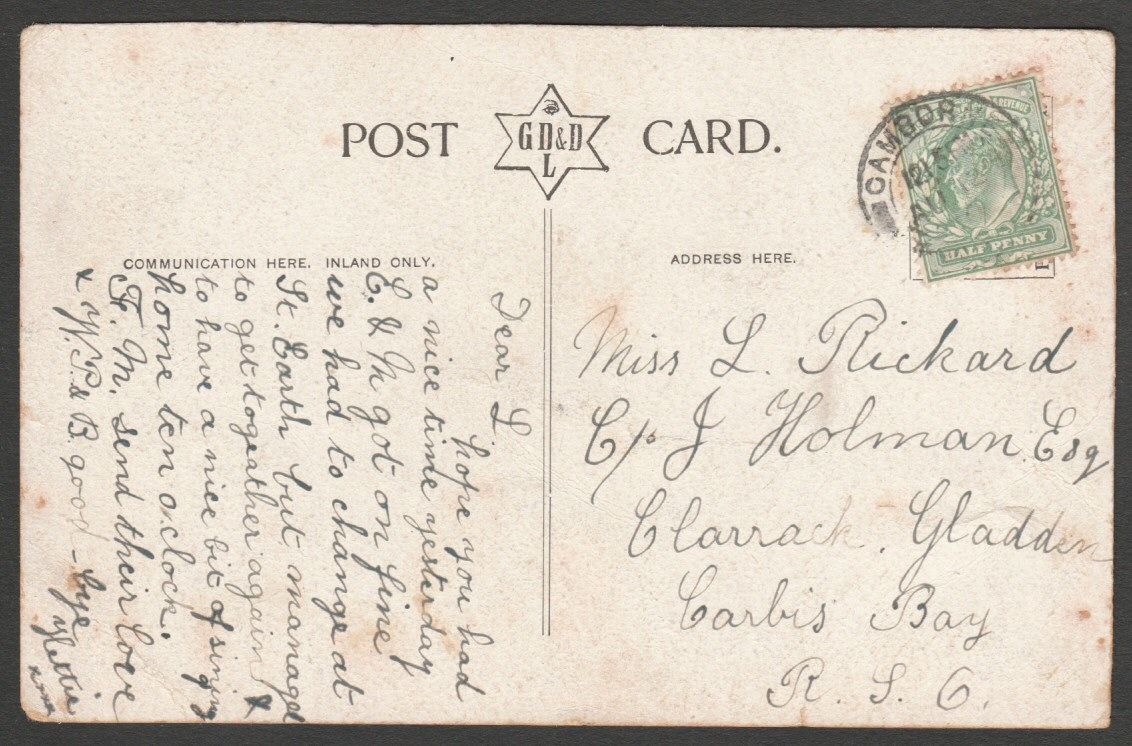 POST CARD.
G D & D
L
COMMUNICATION HERE. INLAND ONLY.
ADDRESS HERE.
CAMBOR
REVENUE
HALF PENNY
Dear L
hope you had
a nice time yesterday
E. & M got on fine
we had to change at
St. Earth but managed
to get togeather again &
to have a nice bit of sining
home ten oclock.
F. M. send their love
x W. P. & B. good-bye
Miss L. Rickard
C/o J Holman Esq
Clarrack. Gladden
Carbis Bay
R. S. O.